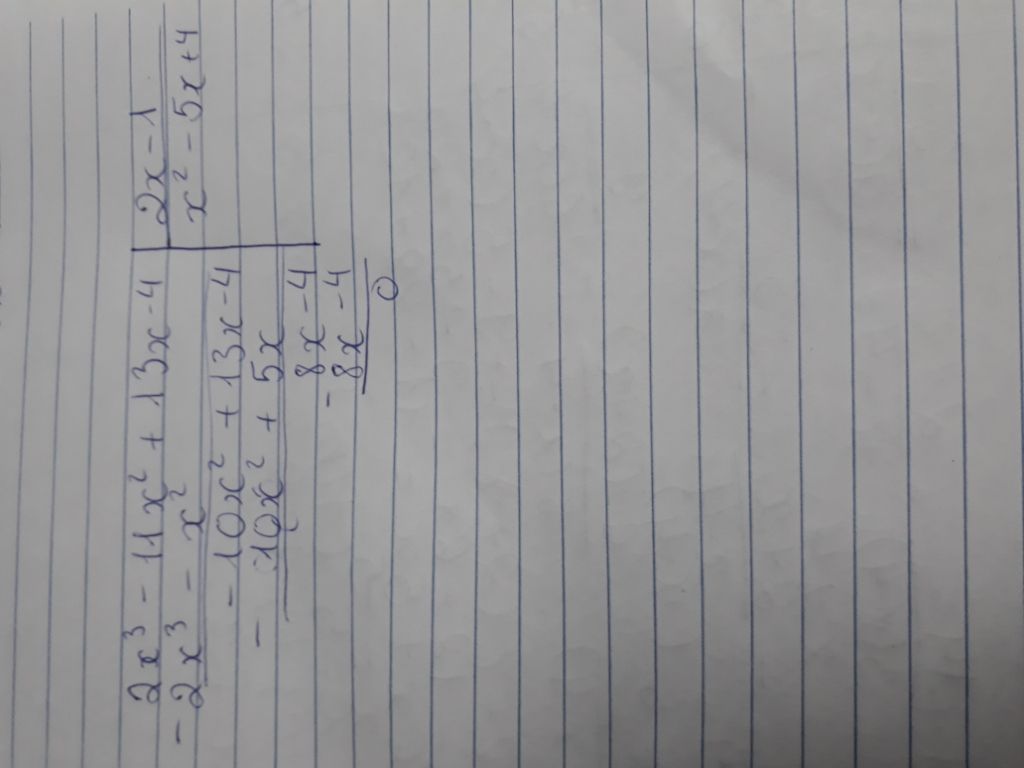 2x³ - 11x² + 13x - 4 | 2x - 1
- 2x³ - x² | x² - 5x + 4
- 10x² + 13x - 4
- -10x² + 5x
8x - 4
- 8x - 4
0